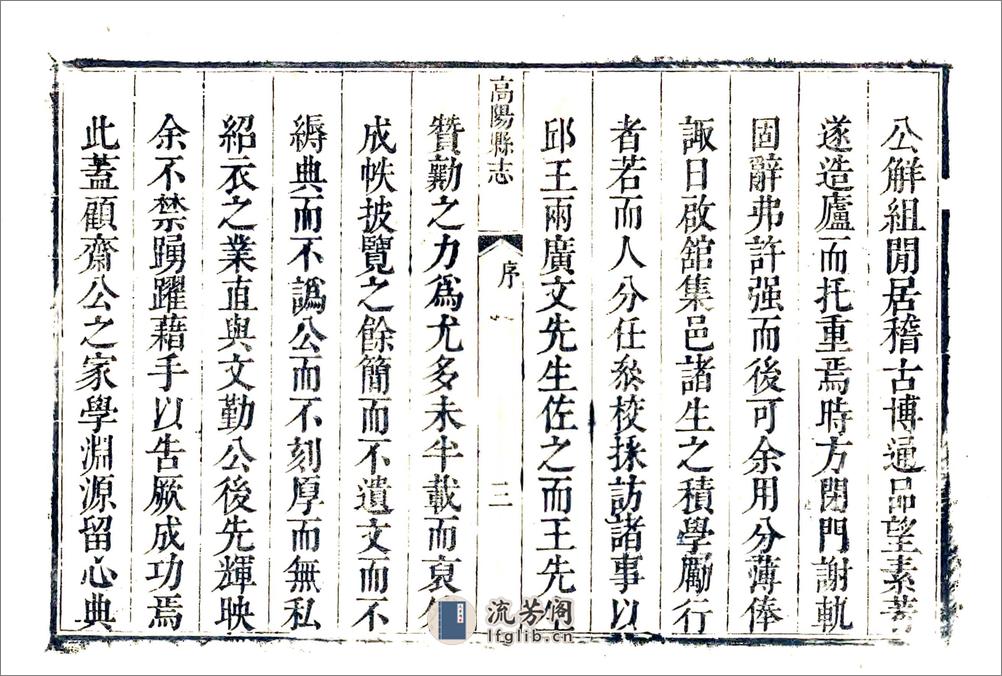 公解組閒居稽古博通品望素著
遂造廬而托重焉時方閉門謝軌
固辭弗許强而後可余用分薄俸
諏日啟舘集邑諸生之積學勵行
者若而人分任叅校採訪諸事以
邱王兩廣文先生佐之而王先
高陽縣志
序
二
贊勷之力爲尤多未半載而裒
成帙披覽之餘簡而不遺文而不
縟典而不譌公而不刻厚而無私
紹衣之業直與文勤公後先輝映
余不禁踴躍藉手以告厥成功焉
此蓋顧齋公之家學淵源留心典
流芳阁
lfglib.cn